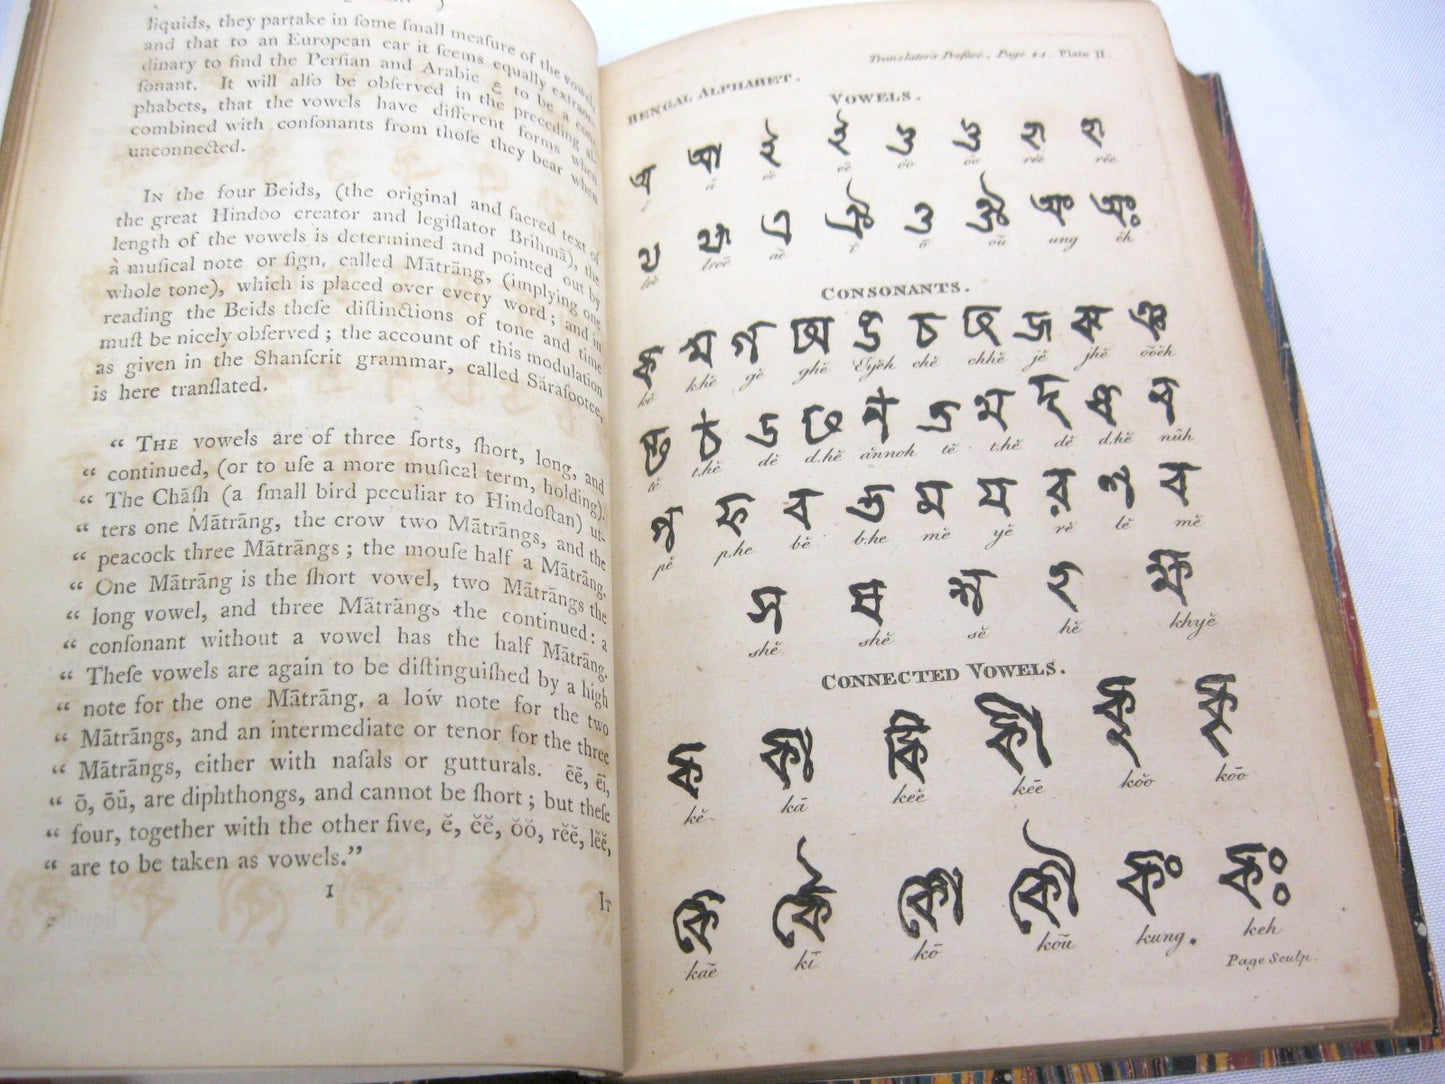 liquids, they partake in ſome ſmall meaſure of the vowels
and that to an European ear it ſeems equally extraor-
dinary to find the Perſian and Arabic ع to be a con-
ſonant. It will alſo be obſerved in the preceding al-
phabets, that the vowels have different forms when
combined with conſonants from thoſe they bear when
unconnected.
IN the four Beids, (the original and ſacred text of
the great Hindoo creator and legiſlator Brihmā), the
length of the vowels is determined and pointed out by
à muſical note or ſign, called Mātrāng, (implying one
whole tone), which is placed over every word; and in
reading the Beids theſe diſtinctions of tone and time
muſt be nicely obſerved; the account of this modulation
as given in the Shanſcrit grammar, called Sărafootee,
is here tranſlated.
“ THE vowels are of three ſorts, ſhort, long, and
“ continued, (or to uſe a more muſical term, holding).
“ The Chāſh (a ſmall bird peculiar to Hindoſtan) ut-
“ ters one Mātrāng, the crow two Mātrāngs, and the
“ peacock three Mātrāngs; the mouſe half a Mātrāng.
“ One Mātrāng is the ſhort vowel, two Mātrāngs the
“ long vowel, and three Mātrāngs the continued: a
“ conſonant without a vowel has the half Mātrāng.
“ Theſe vowels are again to be diſtinguiſhed by a high
“ note for the one Mātrāng, a low note for the two
“ Mātrāngs, and an intermediate or tenor for the three
“ Mātrāngs, either with naſals or gutturals. ēē, ēī,
“ ō, ōū, are diphthongs, and cannot be ſhort; but theſe
“ four, together with the other five, ĕ, ĕĕ, ŏŏ, rĕĕ, lĕĕ,
“ are to be taken as vowels.”
I
IT
Tranſlator's Preface, Page 21. Plate II.
BENGAL ALPHABET.
VOWELS.
অ আ ই ঈ উ ঊ ঋ ৠ
ā ĕĕ ēē ŏŏ ōō rĕĕ rēē
ঌ ৡ এ ঐ ও ঔ অং অঃ
lrēē aĕ ī ō ōū ung ĕh
CONSONANTS.
ক খ গ ঘ ঙ চ ছ জ ঝ ঞ
kĕ k.hĕ gĕ ghĕ chĕ chhĕ jĕ jhĕ
ট ঠ ড ঢ ণ ত থ দ ধ ন
tĕ t.hĕ dĕ d.hĕ ānnoh tĕ t.hĕ dĕ d.hĕ nŭh
প ফ ব ভ ম য র ল ব
pĕ p.he bĕ b.he mĕ yĕ rĕ lĕ mĕ
শ ষ স হ ক্ষ
shĕ shĕ sĕ hĕ khyĕ
CONNECTED VOWELS.
ক কা কি কী কু কূ
kĕ kā keĕ kēē kŏo kōo
কে কৈ কো কৌ কং কঃ
kaĕ kī kō kōū kung. keh
Page Sculp.